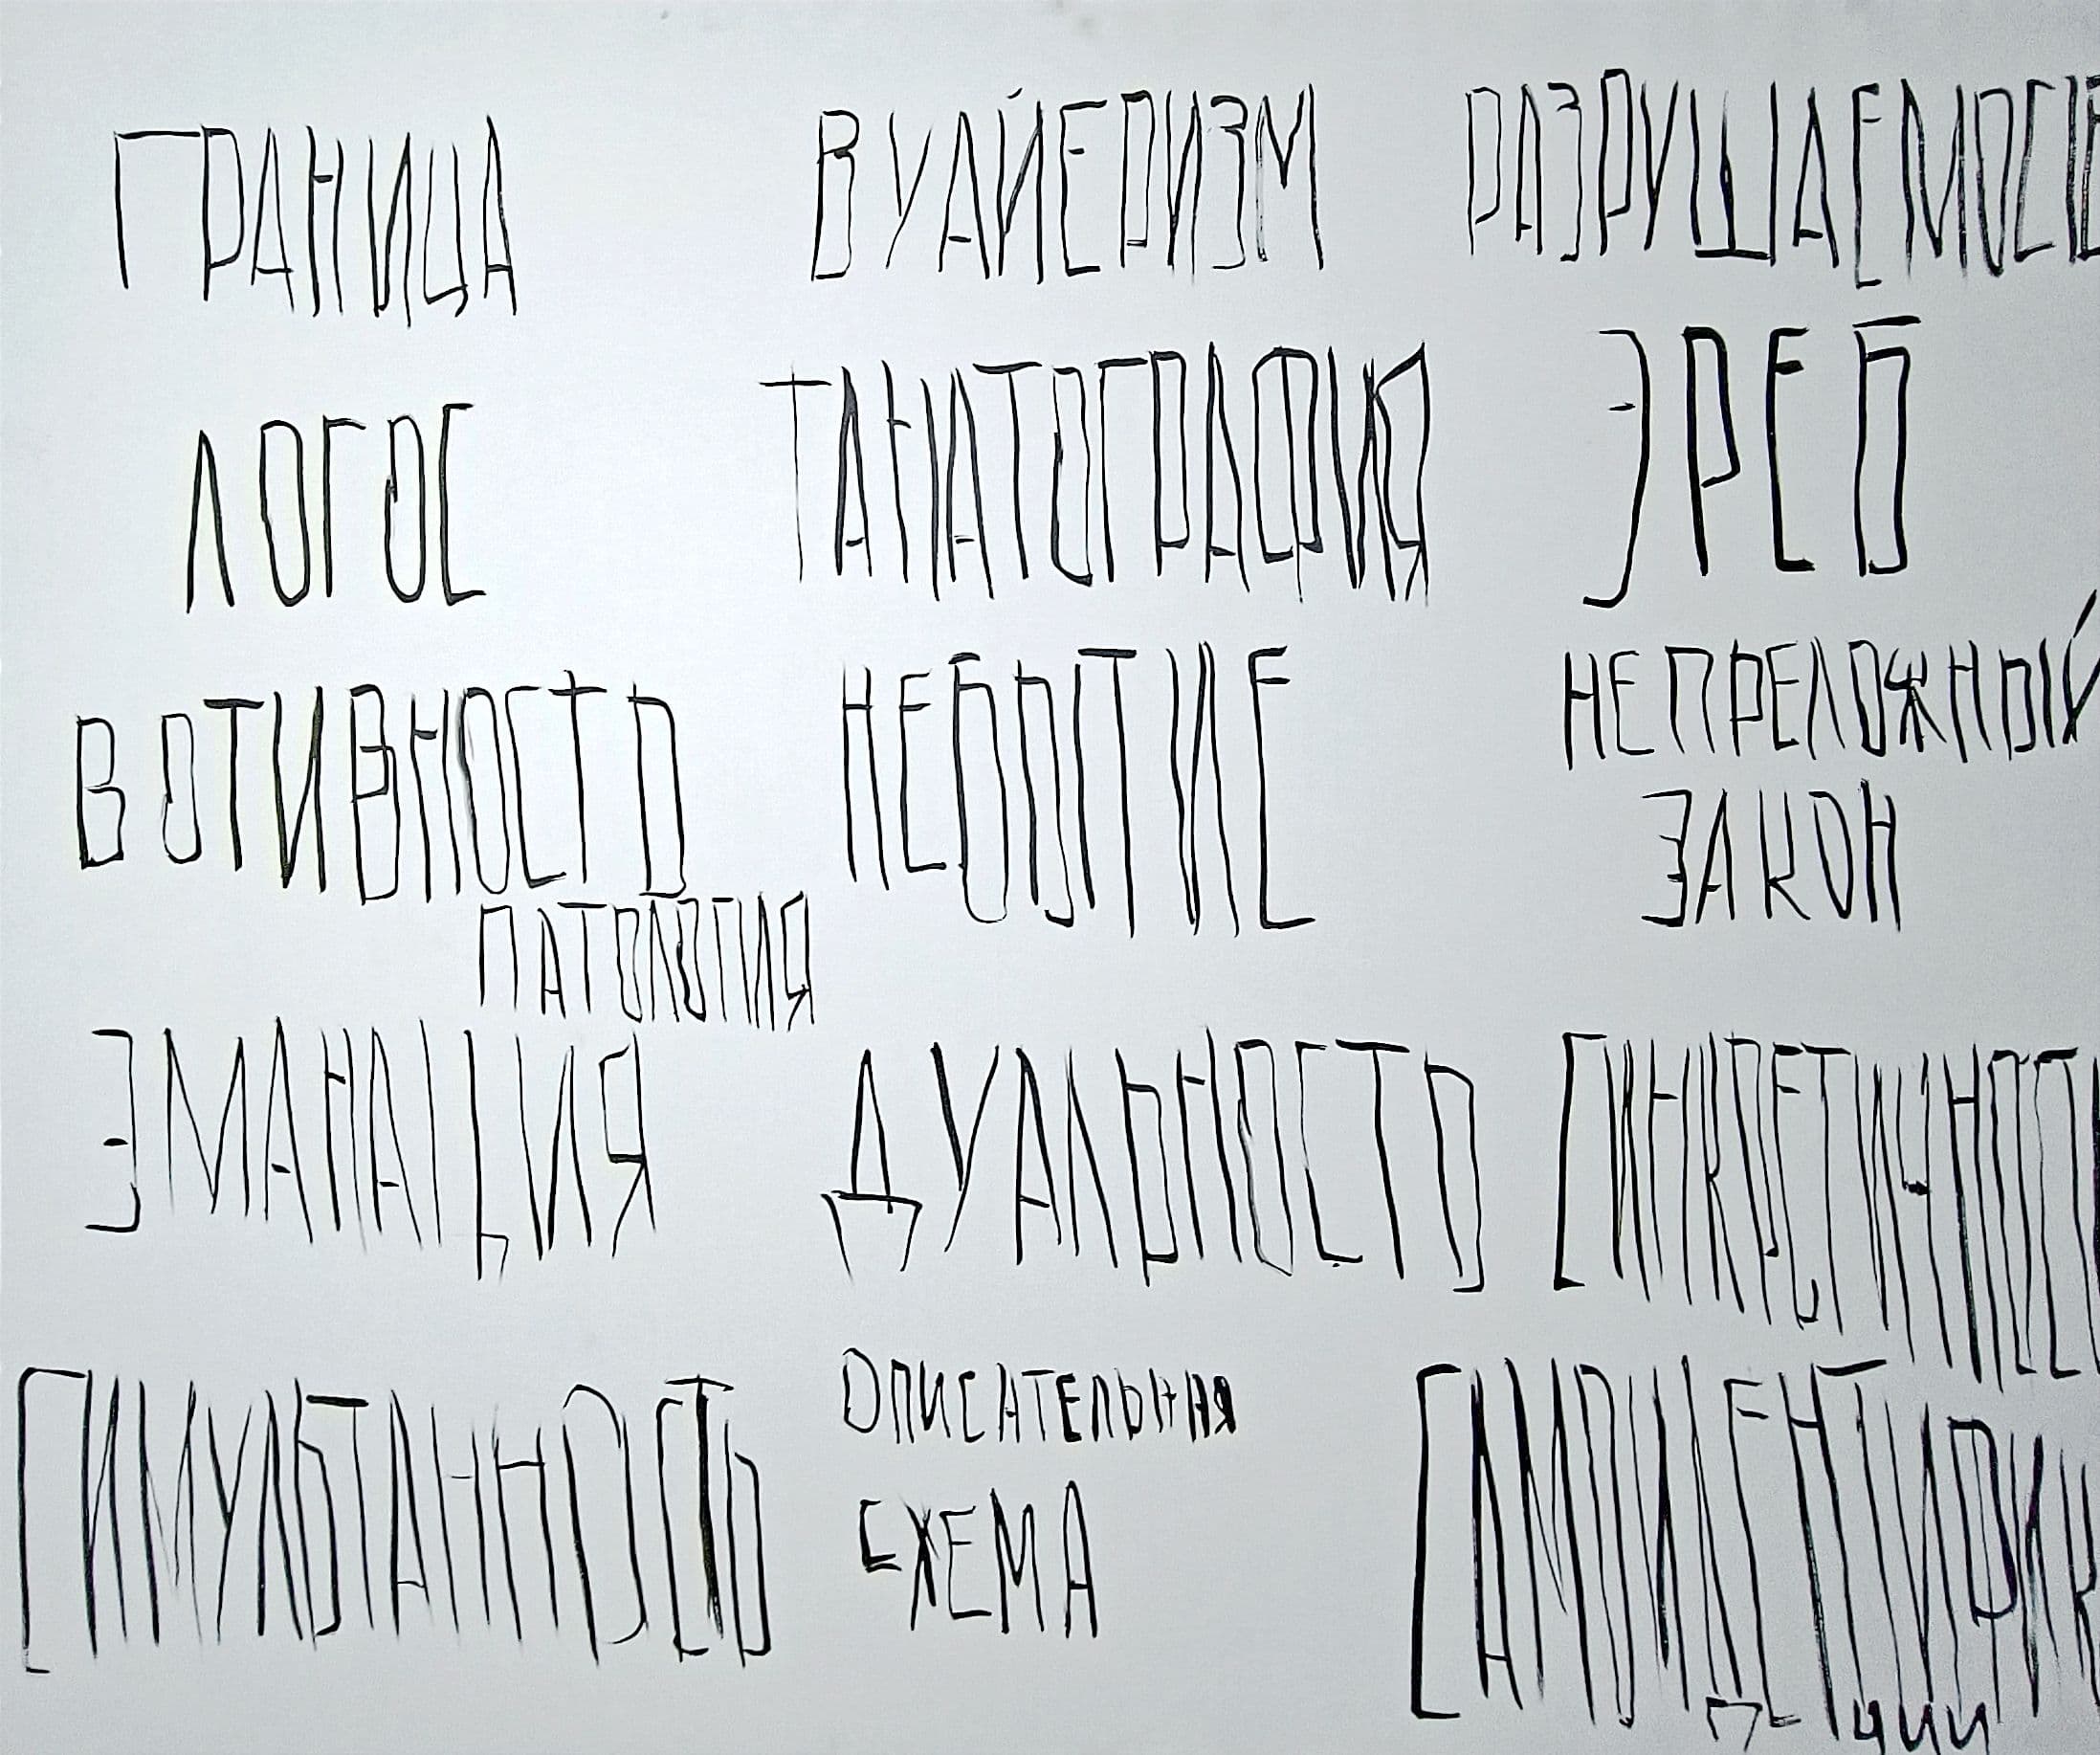 ГРАНИЦА ВУАЙЕРИЗМ РАЗРУШАЕМОСТЬ
ЛОГОС ТАНАТОГРАФИЯ ЭРЕБ
ВОТИВНОСТЬ НЕБЫТИЕ НЕПРЕЛОЖНЫЙ
ЗАКОН
ПАТОЛОГИЯ
ЭМАНАЦИЯ ДУАЛЬНОСТЬ СИНКРЕТИЧНОСТ
СИМУЛЬТАННОСТЬ ОПИСАТЕЛЬНАЯ
СХЕМА
САМОИДЕНТИФИК